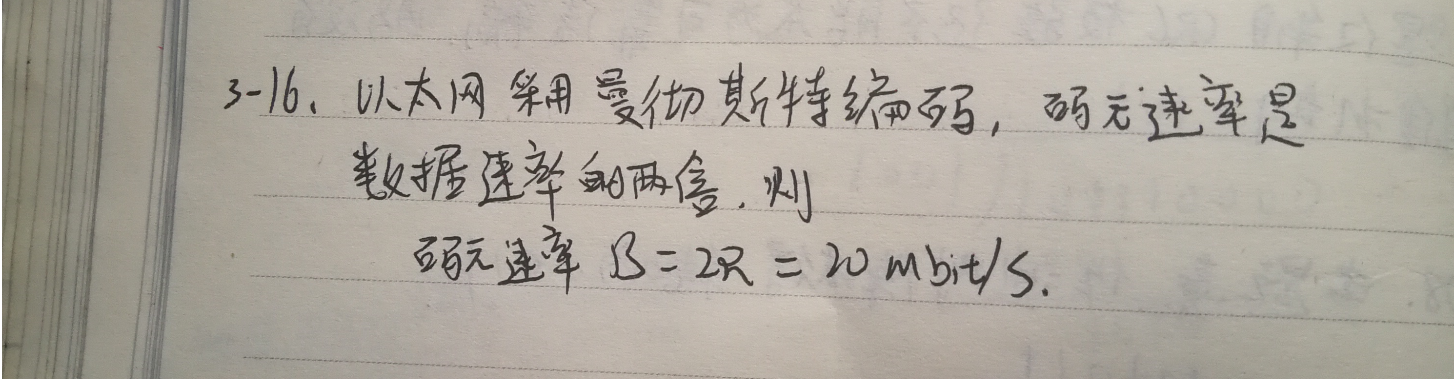 3-16、以太网采用曼彻斯特编码，码元速率是
数据速率的两倍，则
码元速率 B = 2R = 20 mbit/s.